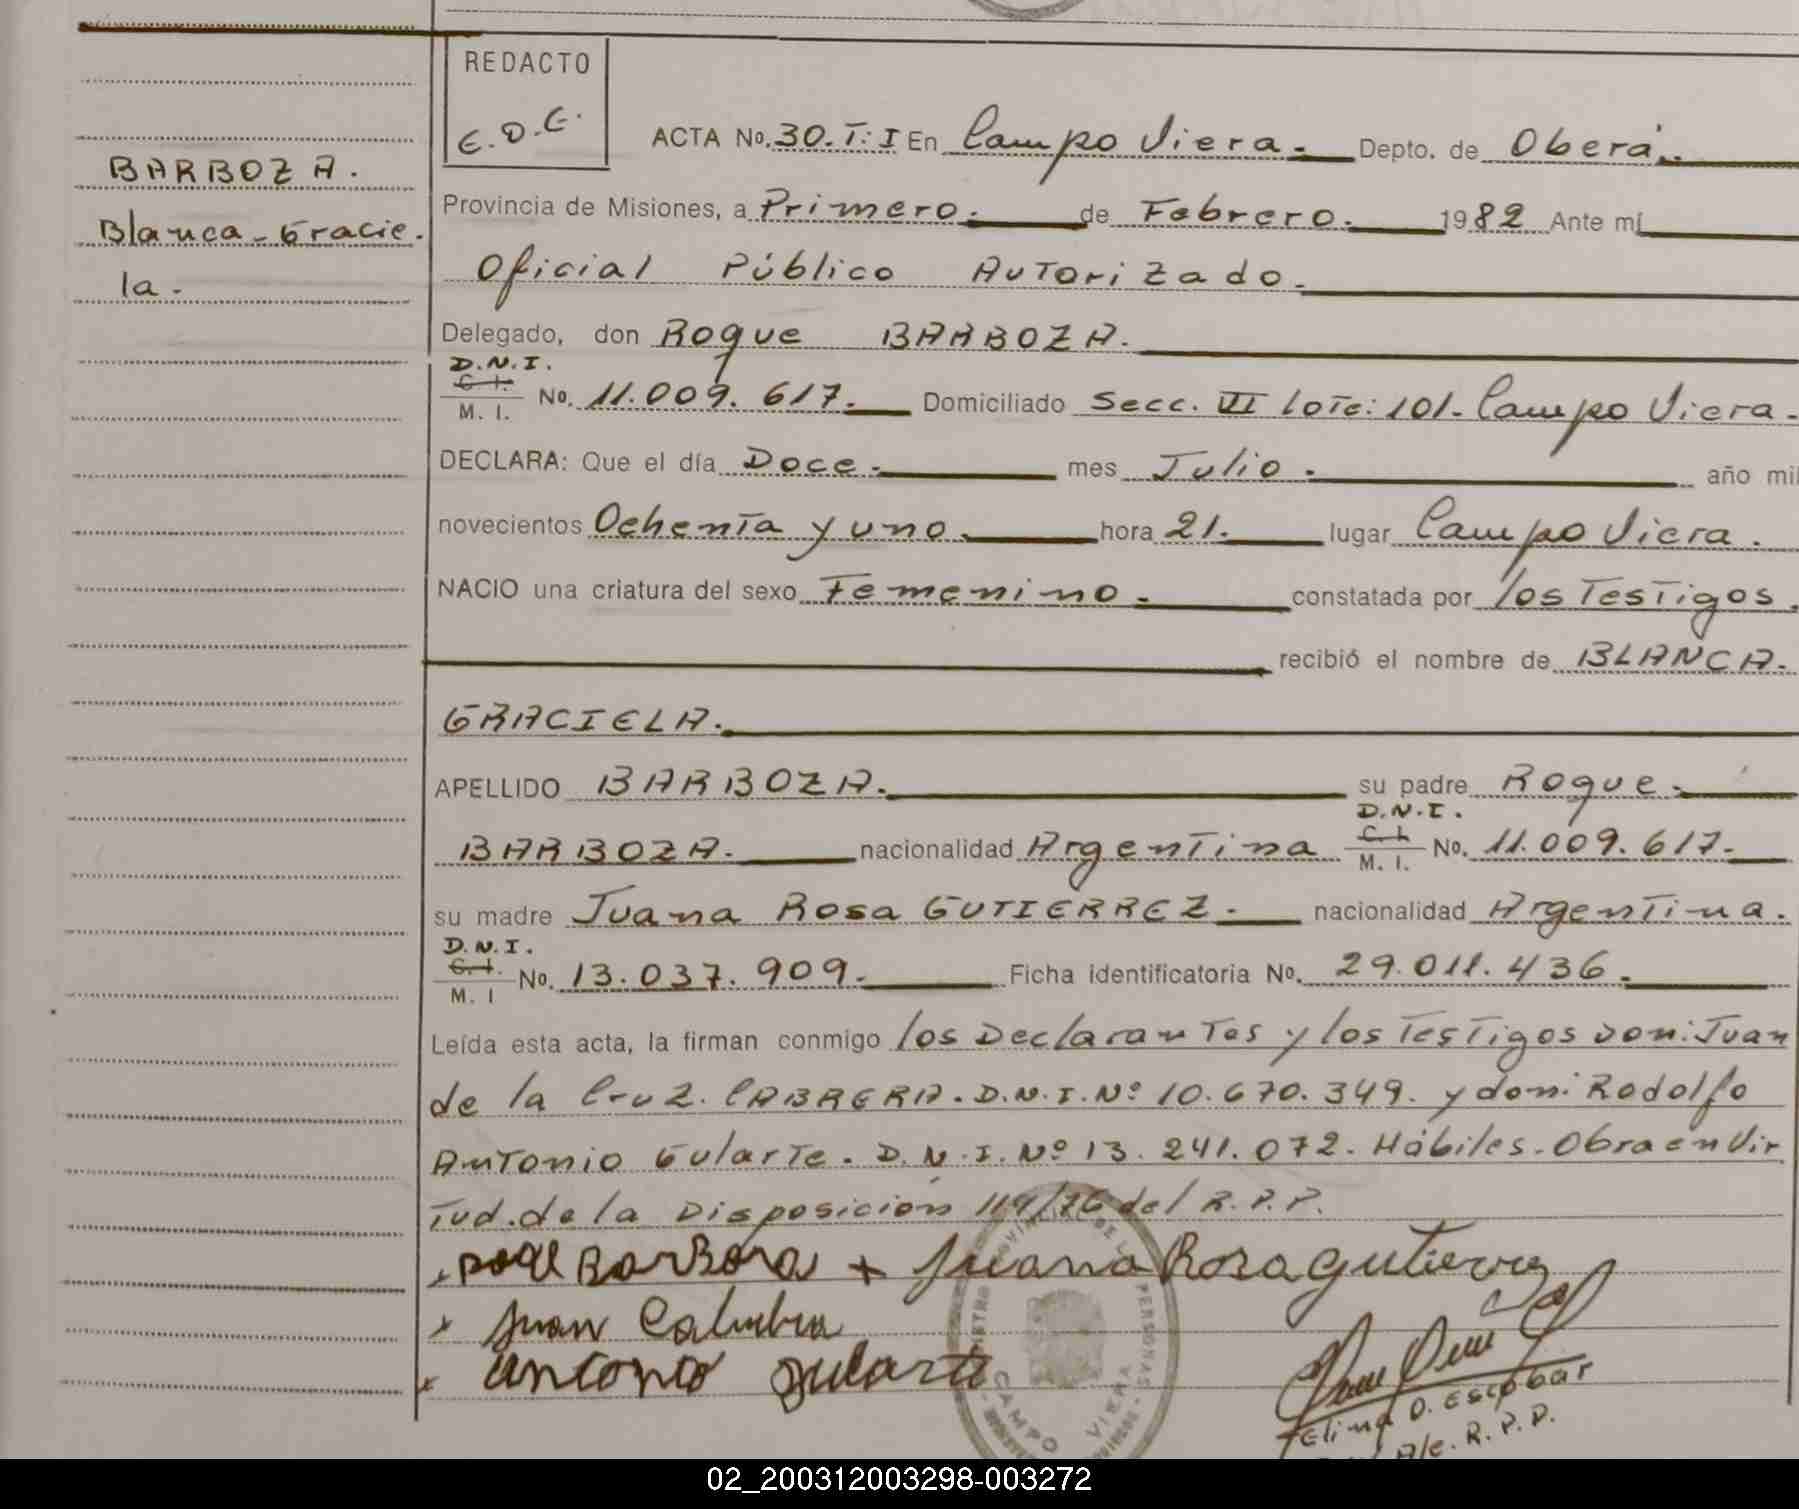 REDACTO
E.D.E.
BARBOZA.
Blanca-Gracie.
la.
ACTA No. 30.T:I En Campo Viera. Depto. de Oberá.
Provincia de Misiones, a Primero. de Febrero. 1982 Ante mí
Oficial Público Autorizado.
Delegado, don Roque BARBOZA.
D.N.I.
C.I.
M. I. No. 11.009.617. Domiciliado Secc. VI lote: 101. Campo Viera.
DECLARA: Que el día Doce. mes Julio. año mil
novecientos Ochenta y uno. hora 21. lugar Campo Viera.
NACIO una criatura del sexo Femenino. constatada por los Testigos.
recibió el nombre de BLANCA.
GRACIELA.
APELLIDO BARBOZA. su padre Roque.
BARBOZA. nacionalidad Argentina D.N.I. C.I. M. I. No. 11.009.617.
su madre Juana Rosa GUTIERREZ. nacionalidad Argentina.
D.N.I.
C.I.
M. I No. 13.037.909. Ficha identificatoria No. 29.011.436.
Leída esta acta, la firman conmigo los Declarantes y los Testigos don: Juan
de la Cruz. CABRERA. D.N.I. Nº 10.670.349. y don: Rodolfo
Antonio Gularte. D.N.I. Nº 13.241.072. Hábiles. Obra en Vir
tud. de la Disposición 119/76 del R.P.P.
Barboza + Juana Rosa gutierrez
x Juan
x antonio gularte
CAMPO VIERA
Elina D. Escobar
A/c. R.P.P.
02_200312003298-003272